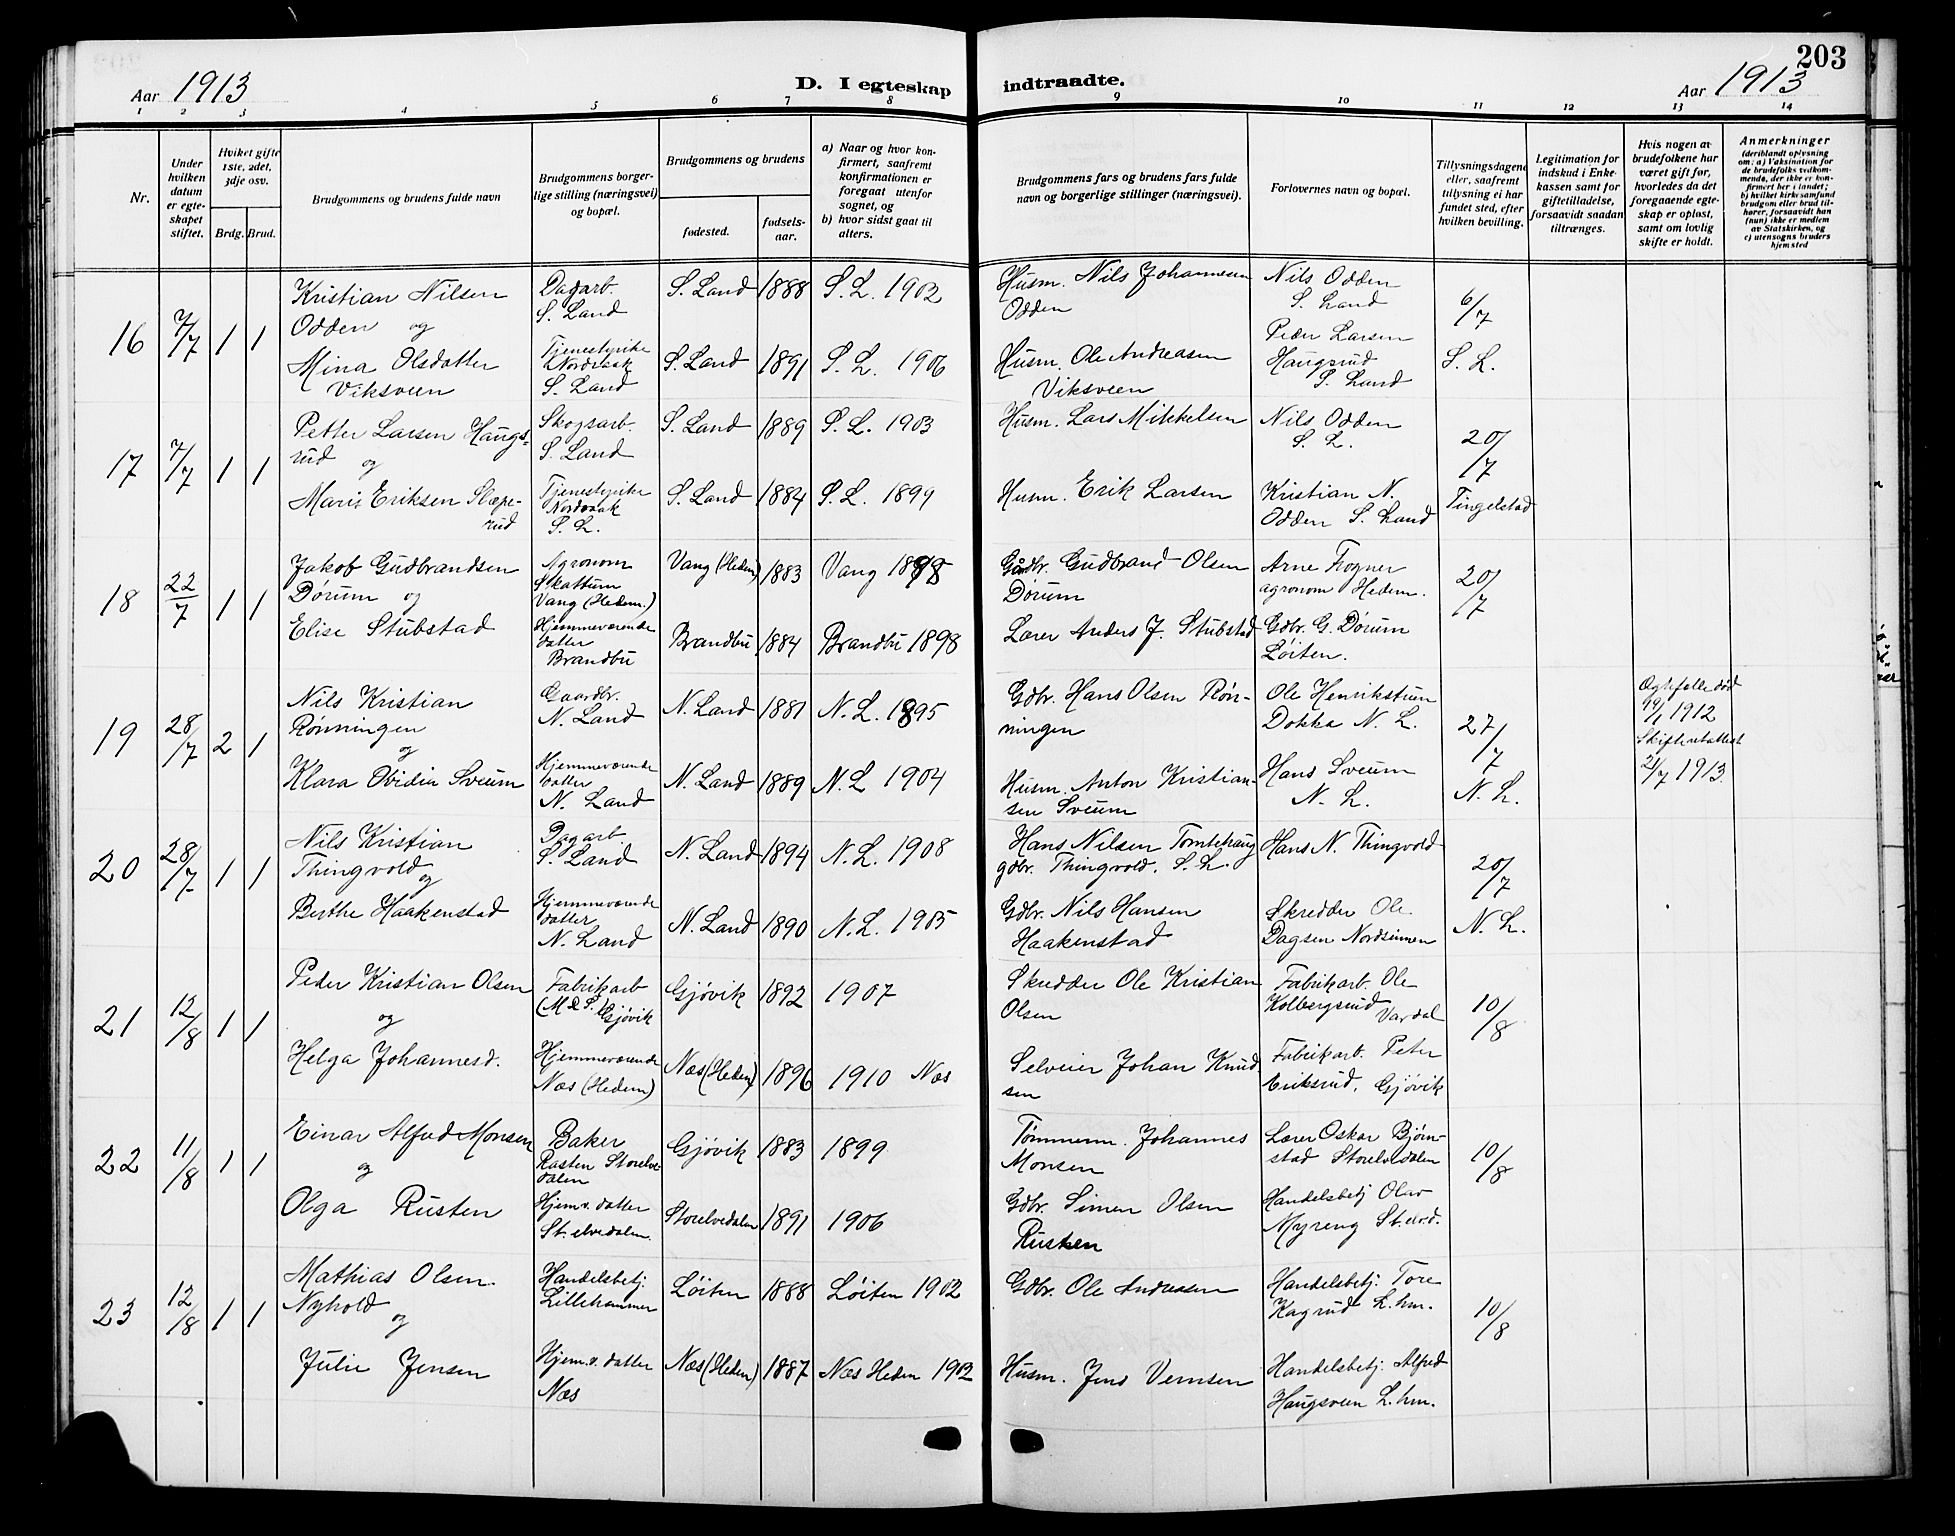 203
Aar 1913
D. I egteskap
indtraadte.
Aar 1913
1 2 3 4 5 6 7 8 9 10 11 12 13 14
Nr.
Under hvilken datum er egte-skapet stiftet.
Hviket gifte 1ste, 2det, 3dje osv.
Brdg. Brud.
Brudgommens og brudens fulde navn
Brudgommens borger-lige stilling (næringsvei) og bopæl.
Brudgommens og brudens
fødested.
fødsels-aar.
a) Naar og hvor kon-firmert, saafremt konfirmationen er foregaat utenfor sognet, og
b) hvor sidst gaat til alters.
Brudgommens fars og brudens fars fulde navn og borgerlige stillinger (næringsvei).
Forlovernes navn og bopæl.
Tillysningsdagene eller, saafremt tillysning ei har fundet sted, efter hvilken bevilling.
Legitimation for indskud i Enke-kassen samt for giftetilladelse, forsaavidt saadan tiltrænges.
Hvis nogen av brudefolkene har været gift før, hvorledes da det foregaaende egte-skap er opløst, samt om lovlig skifte er holdt.
Anmerkninger (deriblandt oplysning om: a) Vaksination for de brudefolks vedkom-mende, der ikke er kon-firmert her i landet; b) hvilket kirkesamfund brudgom eller brud til-hører, forsaavidt han (hun) ikke er medlem av Statskirken, og c) utensogns bruders hjemsted
16 7/7 1 1
Kristian Nilsen
Odden og
Dagarb.
S. Land
S. Land 1888 S. L. 1902
Husm. Nils Johannesen
Odden
Nils Odden
S. Land
6/7
Mina Olsdatter
Viksveen
Tjenestepike
Nordraak
S. Land
S. Land 1891 S. L. 1906
Husm. Ole Andreasen
Viksveen
Peder Larsen
Haugsrud
S. Land
S. L.
17 7/7 1 1
Petter Larsen Haugs-
rud og
Skogsarb.
S. Land
S. Land 1889 S. L. 1903
Husm. Lars Mikkelsen
Nils Odden
S. L.
20/7
Marie Eriksen Slæpe-
rud
Tjenestepike
Nordraak
S. L.
S. Land 1884 S. L. 1899
Husm. Erik Larsen
Kristian N.
Odden S. Land
Tingelstad
18 22/7 1 1
Jakob Gudbrandsen
Dørum og
Agronom
Skattum
Vang (Hedem.)
Vang (Hedem) 1883 Vang 1898
Gdbr. Gudbrand Olsen
Dørum
Arne Fogner
agronom Hedem.
20/7
Elise Stubstad
Hjemmeværende
datter
Brandbu
Brandbu 1884 Brandbu 1898
Lærer Anders J. Stubstad
Gdbr. G. Dørum
Løiten.
19 28/7 2 1
Nils Kristian
Rønningen
og
Gaardbr.
N. Land
N. Land 1881 N. L. 1895
Gdbr. Hans Olsen Røn-
ningen
Ole Henrikstuen
Dokka N. L.
27/7
Egtefelle død
19/1 1912
Skifteretsattest
21/7 1913
Klara Ovidia Sveum
Hjemmeværende
datter
N. Land
N. Land 1889 N. L 1904
Husm. Anton Kristian-
sen Sveum
Hans Sveum
N. L.
N. L.
20 28/7 1 1
Nils Kristian
Thingvold
og
Dagarb.
S. Land
N. Land 1894 N. L. 1908
Hans Nilsen Tomtehaug
gdbr. Thingvold. S. L.
Hans N. Thingvold
20/7
Berthe Haakenstad
Hjemmeværende
datter
N. Land
N. Land 1890 N. L. 1905
Gdbr. Nils Hansen
Haakenstad
Skredder Ole
Dagsen Nordsinnen
N. L.
21 12/8 1 1
Peder Kristian Olsen
og
Fabrikarb
(M & S.) Gjøvik
Gjøvik 1892 1907
Skredder Ole Kristian
Olsen
Fabrikarb. Ole
Kolbergsrud
Vardal
10/8
Helga Johannesd.
Hjemmeværende
Næs (Hedem)
Næs (Hedem) 1896 1910 Næs
Selveier Johan Knud
sen
Fabrikarb. Peter
Eriksrud, Gjøvik
22 11/8 1 1
Einar Alfred Monsen
og
Baker
Rasten Storelve
dalen
Gjøvik 1883 1899
Tømmerm. Johannes
Monsen
Lærer Oskar Bjørn-
stad Storelvedalen
10/8
Olga Rusten
Hjemv. datter
St. elvedalen
Storelvedalen 1891 1906
Gdbr. Simen Olsen
Rusten
Handelsbetj Olav
Myreng St. elvd.
23 12/8 1 1
Mathias Olsen
Nyhold
og
Handelsbetj.
Lillehammer
Løiten 1888 Løiten 1902
Gdbr. Ole Andreasen
Handelsbetj. Tore
Kagrud L. hm.
10/8
Julie Jensen
Hjem.v. datter
Næs
Næs (Hedem) 1887 Næs Hedem 1902
Husm. Jens Vernsen
Handelsbetj. Alfred
Haugsveen L. hm.